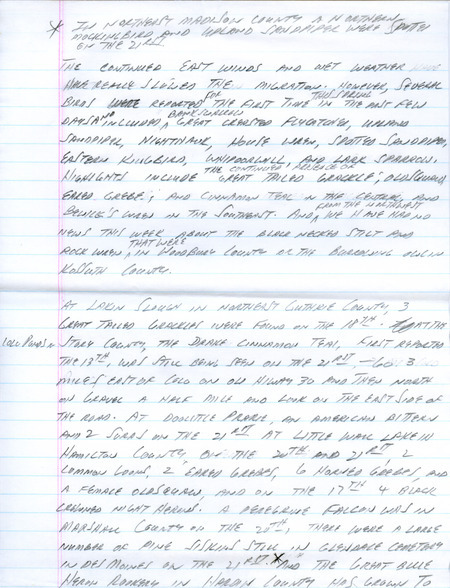 * IN NORTHEAST MADISON COUNTY A NORTHERN
MOCKINGBIRD AND UPLAND SANDPIPER WERE SPOTTED
ON THE 21ST.
THE CONTINUED EAST WINDS AND WET WEATHER HAVE
HAVE REALLY SLOWED THE MIGRATION. HOWEVER, SEVERAL
BIRDS WERE REPORTED FOR THE FIRST TIME THIS SPRING IN THE PAST FEW
DAYS AND INCLUDED, BANK SWALLOW, GREAT CRESTED FLYCATCHER, UPLAND
SANDPIPER, NIGHTHAWK, HOUSE WREN, SPOTTED SANDPIPER,
EASTERN KINGBIRD, WHIPPOORWILL, AND LARK SPARROW.
HIGHLIGHTS INCLUDE THE CONTINUED PRESENCE OF GREAT TAILED GRACKLE, OLDSQUAW,
EARED GREBE; AND CINNAMON TEAL IN THE CENTRAL AND
BEWICK'S WREN IN THE SOUTHEAST. AND, FROM THE NORTHWEST WE HAVE HAD NO
NEWS THIS WEEK ABOUT THE BLACK NECKED STILT AND
ROCK WREN THAT WERE IN WOODBURY COUNTY OR THE BURROWING OWL IN
KOSSUTH COUNTY.
AT LAKIN SLOUGH IN NORTHEAST GUTHRIE COUNTY, 3
GREAT TAILED GRACKLES WERE FOUND ON THE 18TH. AT THE
COLO PONDS IN STORY COUNTY, THE DRAKE CINNAMON TEAL, FIRST REPORTED
THE 13TH, WAS STILL BEING SEEN ON THE 21ST. GO 3
MILES EAST OF COLO ON OLD HIWAY 30 AND THEN NORTH
ON GRAVEL A HALF MILE AND LOOK ON THE EAST SIDE OF
THE ROAD. AT DOOLITTLE PRAIRIE, AN AMERICAN BITTERN
AND 2 SORAS ON THE 21ST. AT LITTLE WALL LAKE IN
HAMILTON COUNTY, ON THE 20TH AND 21ST, 2
COMMON LOONS, 2 EARED GREBES, 6 HORNED GREBES, AND
A FEMALE OLDSQUAW, AND ON THE 17TH 4 BLACK
CROWNED NIGHT HERONS. A PEREGRINE FALCON WAS IN
MARSHALL COUNTY ON THE 20TH. THERE WERE A LARGE
NUMBER OF PINE SISKINS STILL IN GLENDALE CEMETERY
IN DES MOINES ON THE 21ST * AND THE GREAT BLUE
HERON ROOKERY IN HARDIN COUNTY HAS GROWN TO